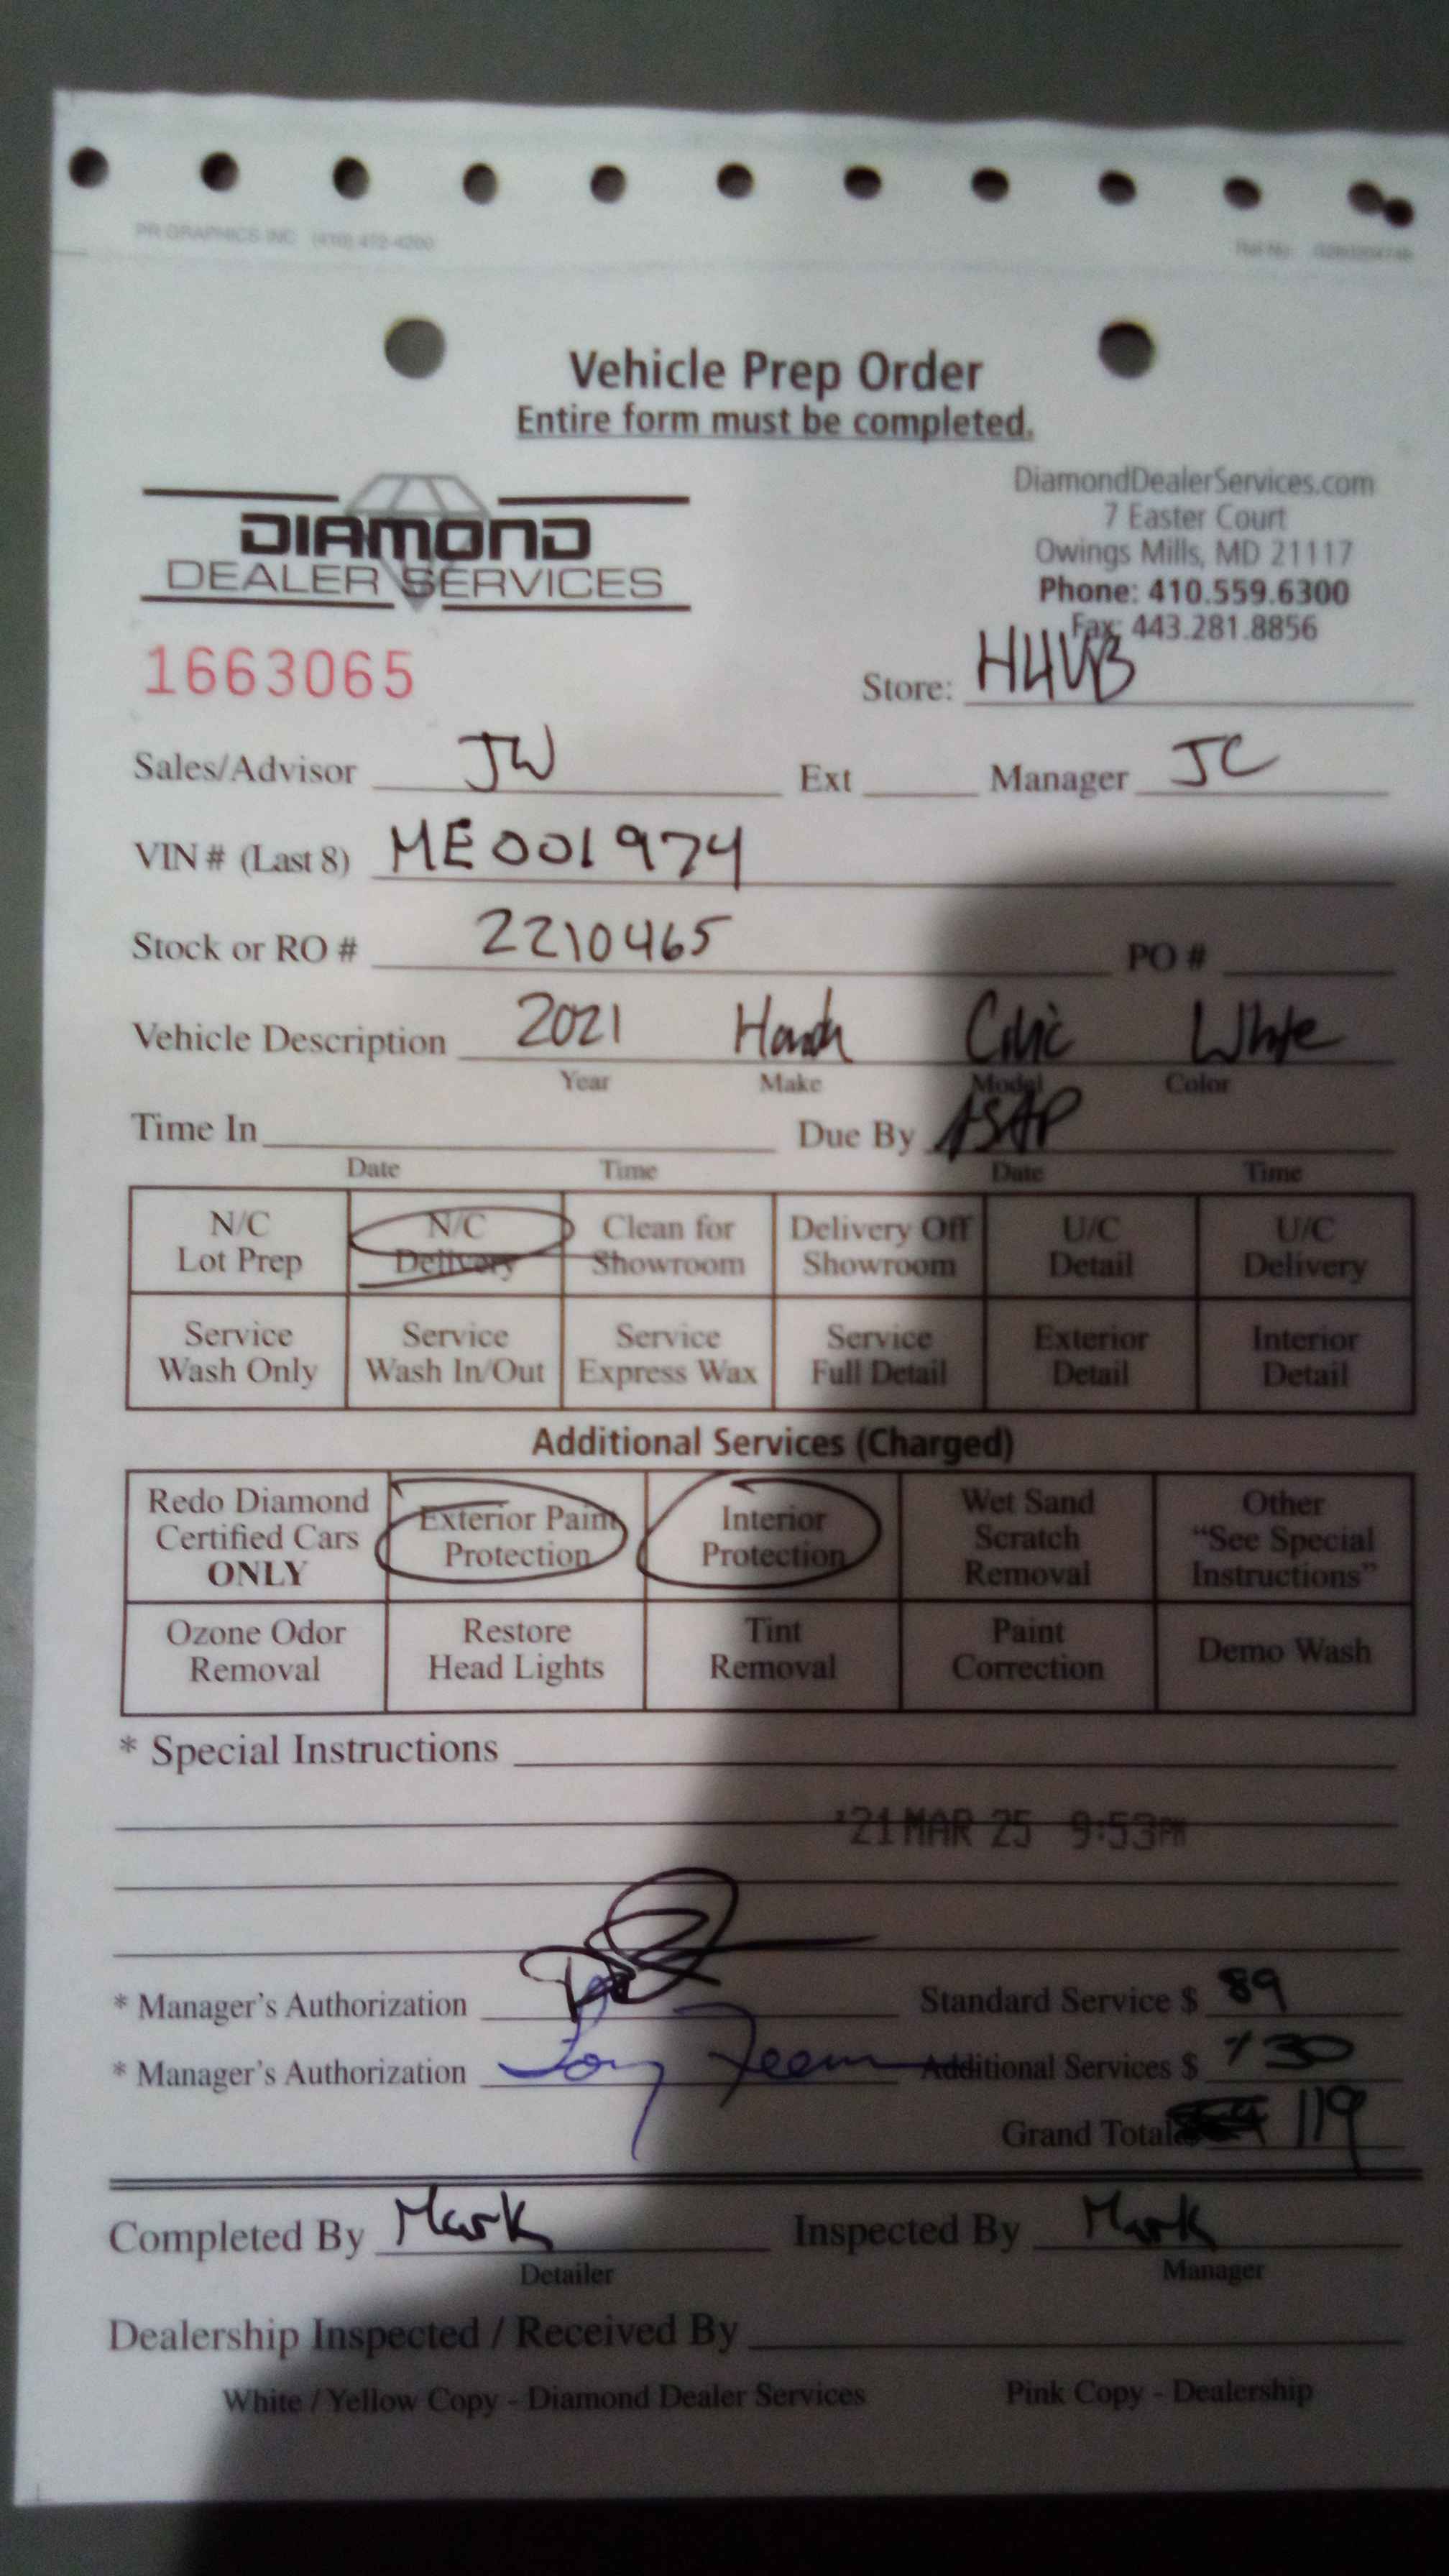 PR GRAPHICS INC (410)
Vehicle Prep Order
Entire form must be completed.
DIAMOND
DEALER SERVICES
DiamondDealerServices.com
7 Easter Court
Owings Mills, MD 21117
Phone: 410.559.6300
Fax: 443.281.8856
1663065
Store:
Sales/Advisor JW Ext Manager JC
VIN # (Last 8) ME001974
Stock or RO # 2210465 PO #
Vehicle Description 2021 Honda Civic White
Year Make Model Color
Time In Due By ASAP
Date Time Date Time
N/C N/C Clean for Delivery Off U/C U/C
Lot Prep Delivery Showroom Showroom Detail Delivery
Service Service Service Service Exterior Interior
Wash Only Wash In/Out Express Wax Full Detail Detail Detail
Additional Services (Charged)
Redo Diamond Certified Cars ONLY
Exterior Paint Protection
Interior Protection
Wet Sand Scratch Removal
Other "See Special Instructions"
Ozone Odor Removal
Restore Head Lights
Tint Removal
Paint Correction
Demo Wash
* Special Instructions
'21 MAR 25 9:53PM
* Manager's Authorization Standard Service $ 89
* Manager's Authorization Additional Services $ 30
Grand Total 119
Completed By Mark Inspected By Mark
Detailer Manager
Dealership Inspected / Received By
White / Yellow Copy - Diamond Dealer Services Pink Copy - Dealership